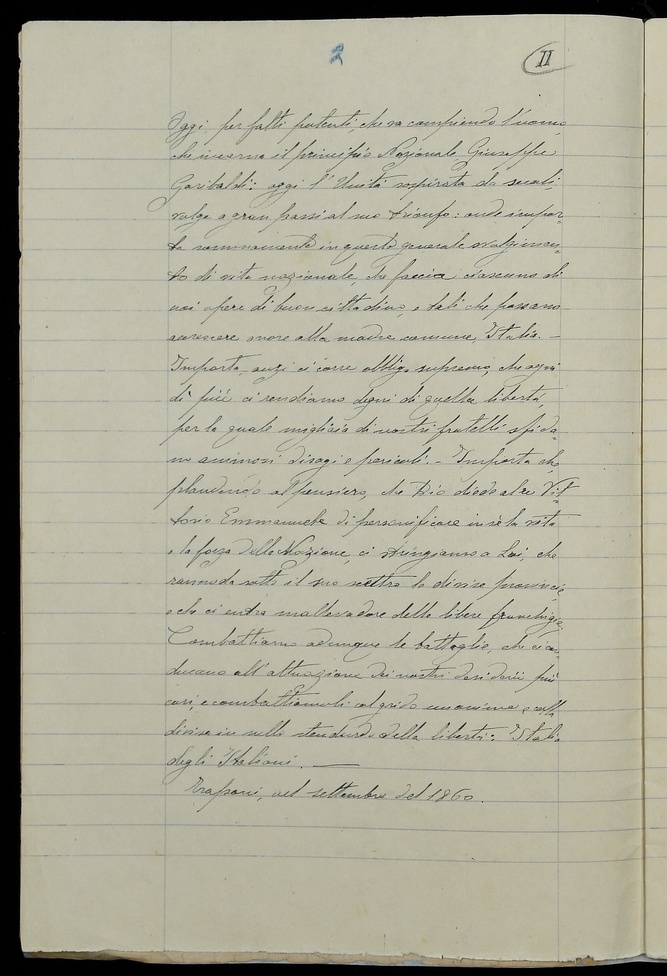 2
II
Oggi, per fatti potenti, che va compiendo l'uomo
che incarna il principio Nazionale, Giuseppe
Garibaldi: oggi l'Unità sospirata da secoli
volge a gran passi al suo trionfo: onde impor-
ta sommamente in questo generale svolgimen-
to di vita nazionale, che faccia ciascuno di
noi opere di buon cittadino, e tali che possano
accrescere onore alla madre comune, Italia. —
Importa, anzi ci corre obbligo supremo, che ogni
dì più ci rendiamo degni di quella libertà,
per la quale migliaia di nostri fratelli sfida-
no animosi disagi e pericoli. — Importa, che
plaudendo al pensiero, che Dio diede al re Vit-
torio Emmanuele di personificare in sè la vita
e la forza della Nazione, ci stringiamo a Lui, che
rannoda sotto il suo scettro le divise provincie,
e che ci entra mallevadore delle libere franchigie.
Combattiamo adunque le battaglie, che ci con-
ducano all'attuazione dei nostri desiderii più
cari, e combattiamole col grido unanime e colla
divisa in sullo stendardo della libertà: Italia
degli Italiani. —
Trapani, nel settembre del 1860.